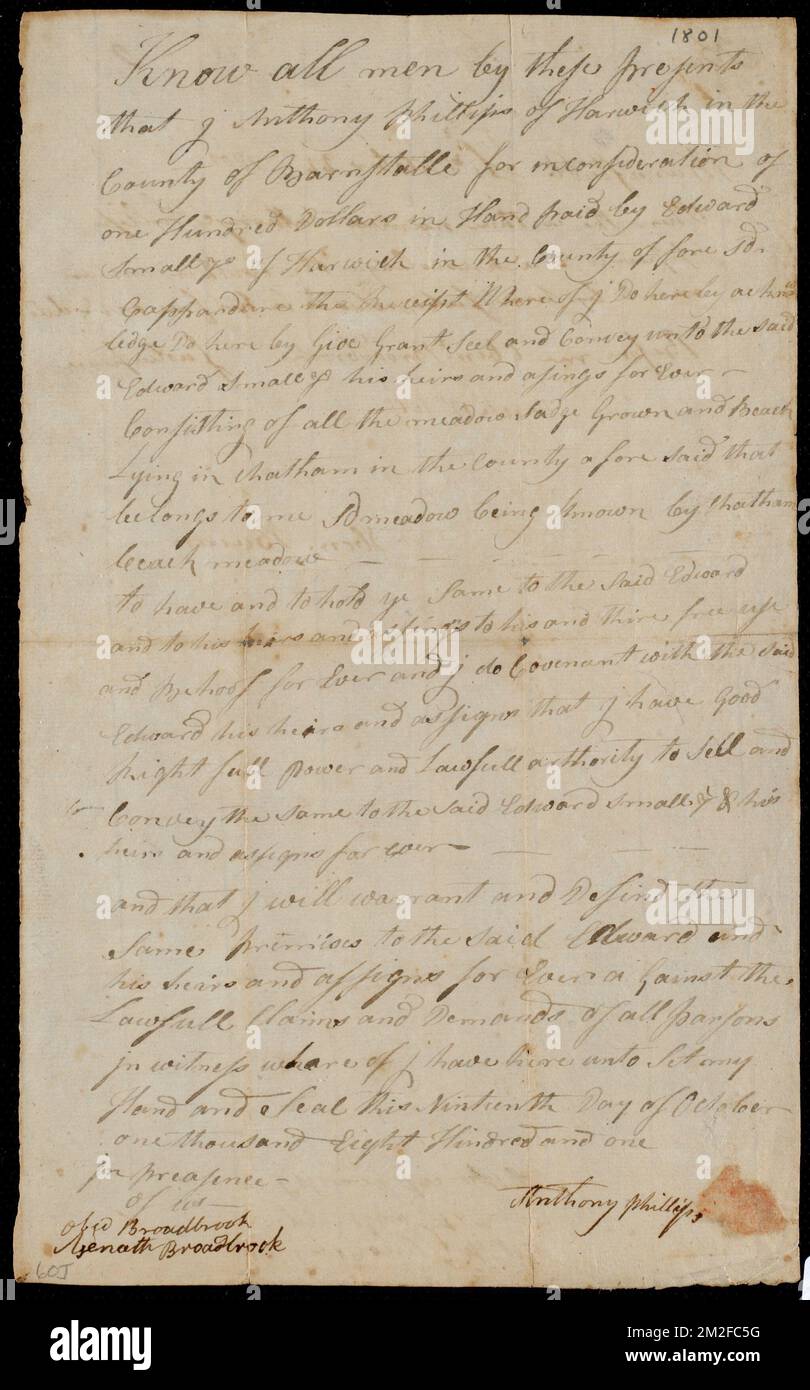 1801
Know all men by these presents
that j Anthony Phillips of Harwich in the
County of Barnstalle for in consideration of
one Hundred Dollars in Hand paid by Edward
Small of Harwich in the County of fore sd.
the Whereof j Do here by
ledge Do here by Give Grant Seel and Convey unto the said
Edward Small his heirs and asings for Ever –
Consitting of all the meadow Sadge Grown and Beach
Lying in Chatham in the County a fore said that
belongs to me Sd meadow being known by Chatham
beach meadow — — — — — — —
to have and to hold ye Same to the Said Edward
and to his heirs and to his and thire free use
and Behoof for Ever and j do Covenant with the said
Edward his heirs and assigns that j have Good
Right full Power and Lawfull athority to Sell and
Convey the same to the said Edward Small & his
heirs and assigns for ever — — — —
and that j will warrant and Defind the
Same to the said Edward and
his heirs and assigns for Ever a Gainst the
Lawfull Claims and Demands of all parsons
jn witness whare of j have here unto Set my
Hand and Seal this Ninteenth Day of October
one thousand Eight Hundred and one
jn preasence –
of us –
Anthony Phillips
Obed Broadbrook
Asenath Broadbrook
605
alamy
alamy
Image ID: 2M2FC5G
www.alamy.com